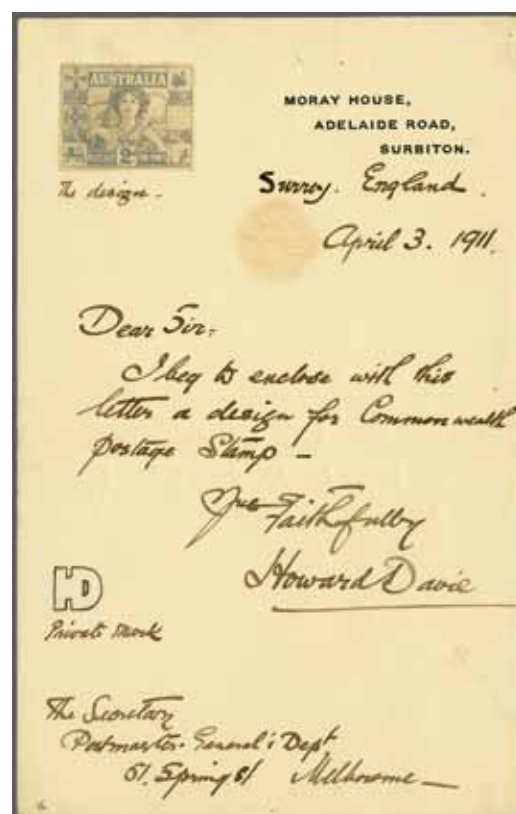 AUSTRALIA
2D
The design -
MORAY HOUSE,
ADELAIDE ROAD,
SURBITON.
Surrey. England.
April 3. 1911.
Dear Sir.
I beg to enclose with this
letter a design for Commonwealth
postage Stamp -
Faithfully
Howard Davie
HD
Private Mark
The Secretary
Postmaster-General's Dept
51. Spring St Melbourne -